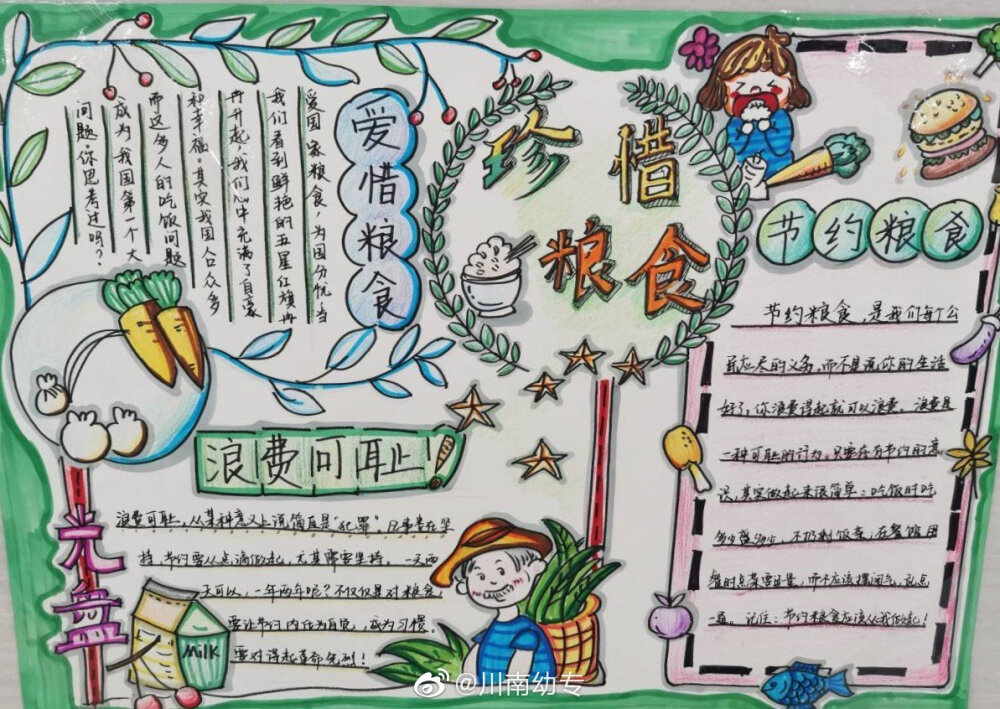 珍惜
粮食
爱惜粮食
爱国家粮食，为国分忧。当
我们看到鲜艳的五星红旗冉
冉升起，我们心中充满了自豪
和幸福。其实我国人口众多
而这多人的吃饭问题
成为我国第一个大
问题。你思考过吗？
节约粮食
节约粮食，是我们每个公
民应尽的义务，而不是说你的生活
好了，你浪费得起就可以浪费。浪费是
一种可耻的行为。只要存有节约的意
识，其实做起来很简单：吃饭时吃
多少盛多少，不扔剩饭菜，在餐馆
餐时点菜要适量，而不应该摆阔气，乱点
一通。记住：节约粮食应该从我做起！
浪费可耻！
浪费可耻，从某种意义上说简直是“犯罪”。凡事贵在坚
持，节约要从点滴做起，尤其需要坚持。一天两
天可以，一年两年呢？不仅仅是对粮食，
要让节约内化为自觉，成为习惯。
要对得起革命先烈！
光盘
MILK
@川南幼专